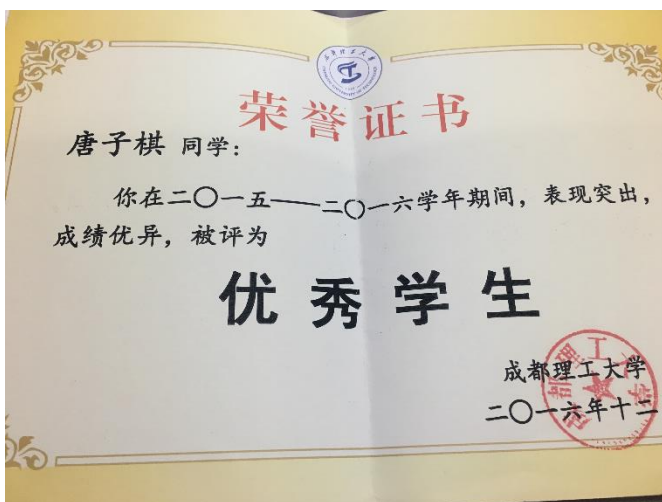 荣誉证书
唐子棋 同学：
你在二〇一五——二〇一六学年期间，表现突出，
成绩优异，被评为
优秀学生
成都理工大学
二〇一六年十二